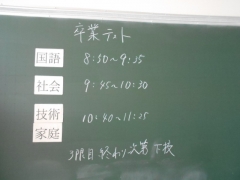 卒業テスト
国語 8:50~9:35
社会 9:45~10:30
技術
家庭 10:40~11:25
3限目 終わり次第 下校